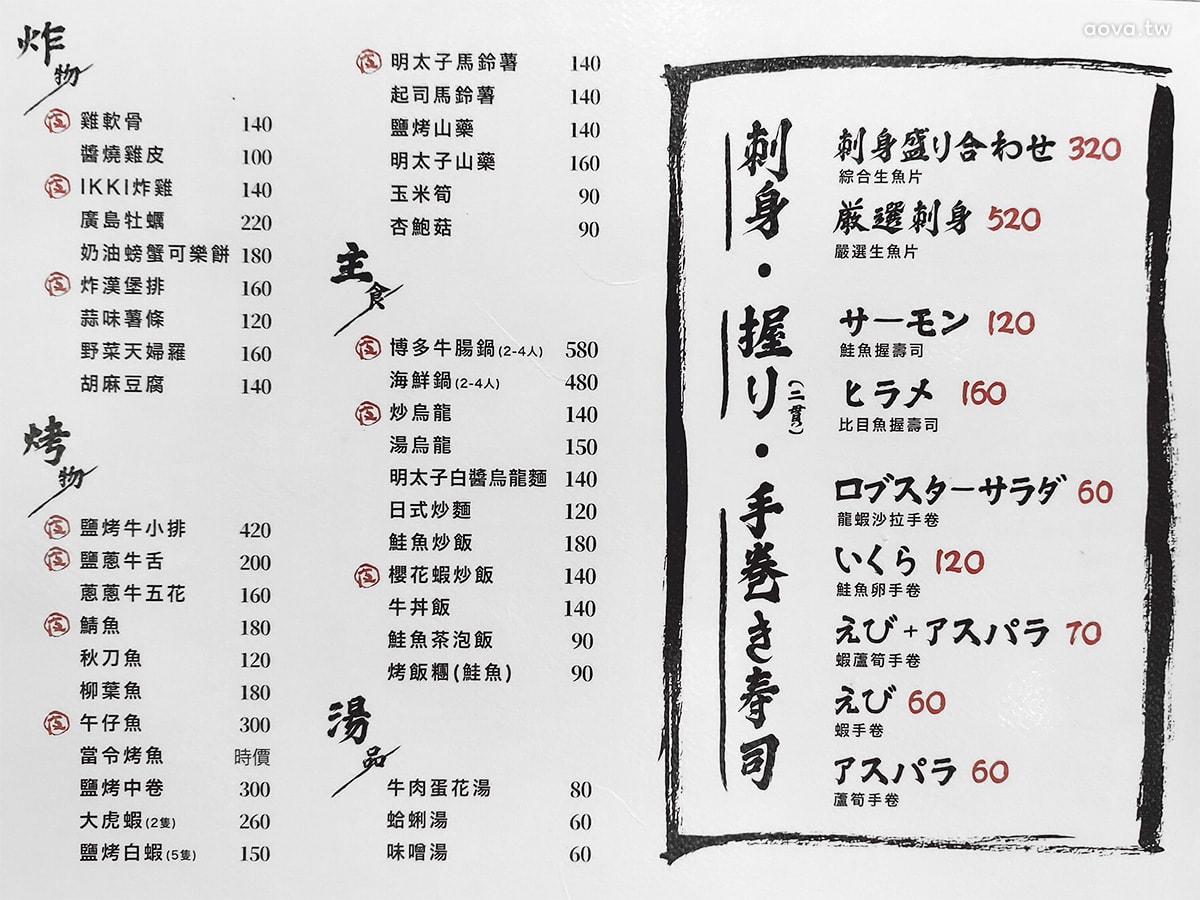 aova.tw
炸物
雞軟骨 140
醬燒雞皮 100
IKKI炸雞 140
廣島牡蠣 220
奶油螃蟹可樂餅 180
炸漢堡排 160
蒜味薯條 120
野菜天婦羅 160
胡麻豆腐 140
烤物
鹽烤牛小排 420
鹽蔥牛舌 200
蔥蔥牛五花 160
鯖魚 180
秋刀魚 120
柳葉魚 180
午仔魚 300
當令烤魚 時價
鹽烤中卷 300
大虎蝦(2隻) 260
鹽烤白蝦(5隻) 150
明太子馬鈴薯 140
起司馬鈴薯 140
鹽烤山藥 140
明太子山藥 160
玉米筍 90
杏鮑菇 90
主食
博多牛腸鍋(2-4人) 580
海鮮鍋(2-4人) 480
炒烏龍 140
湯烏龍 150
明太子白醬烏龍麵 140
日式炒麵 120
鮭魚炒飯 180
櫻花蝦炒飯 140
牛丼飯 140
鮭魚茶泡飯 90
烤飯糰(鮭魚) 90
湯品
牛肉蛋花湯 80
蛤蜊湯 60
味噌湯 60
刺身・握り(二貫)・手巻き寿司
刺身盛り合わせ 320
綜合生魚片
厳選刺身 520
嚴選生魚片
サーモン 120
鮭魚握壽司
ヒラメ 160
比目魚握壽司
ロブスターサラダ 60
龍蝦沙拉手卷
いくら 120
鮭魚卵手卷
えび+アスパラ 70
蝦蘆筍手卷
えび 60
蝦手卷
アスパラ 60
蘆筍手卷